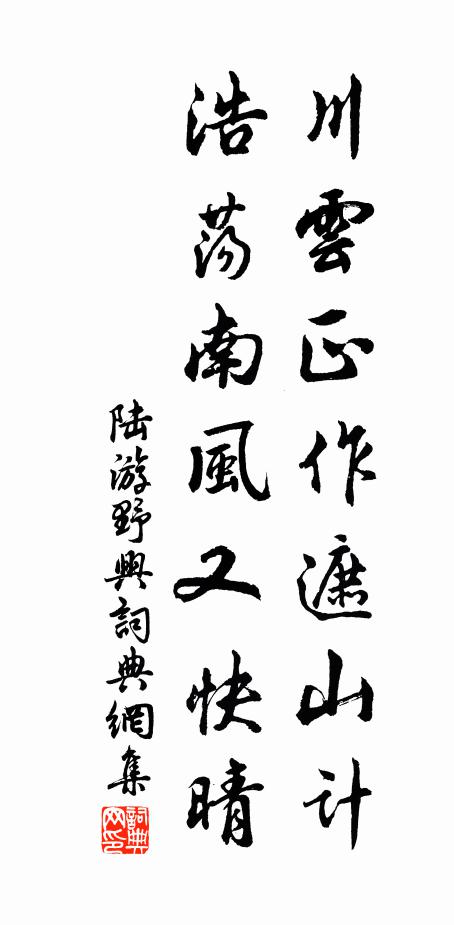 川雲正作遮山計
浩荡南風又快晴
陆游野興詞典網集
詞典网印